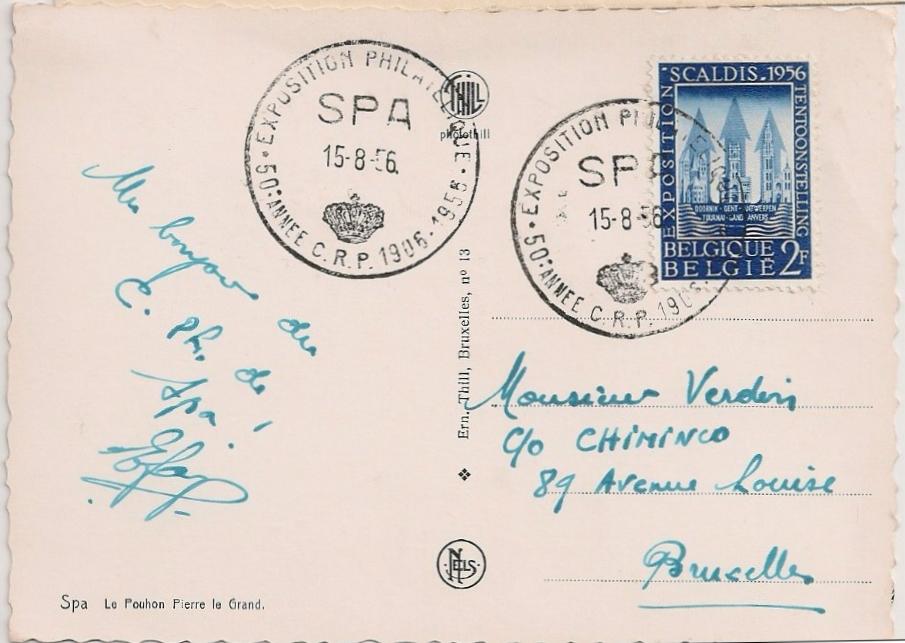 EXPOSITION PHILATELIQUE
SPA
15-8-56.
50e ANNEE C.R.P. 1906-1956
THILL
photothill
EXPOSITION PHILATELIQUE
SPA
15-8-56
50e ANNEE C.R.P. 1906
EXPOSITION
SCALDIS.1956
TENTOONSTELLING
DOORNIK-GENT-ANTWERPEN
TOURNAI-GAND ANVERS
BELGIQUE
BELGIË 2F
Un bonjour
du
C. Ph. de
Spa!
Ern. Thill, Bruxelles, nº 13
Monsieur Verdin
c/o CHIMINCO
89 Avenue Louise
Bruxelles
NELS
Spa Le Pouhon Pierre le Grand.